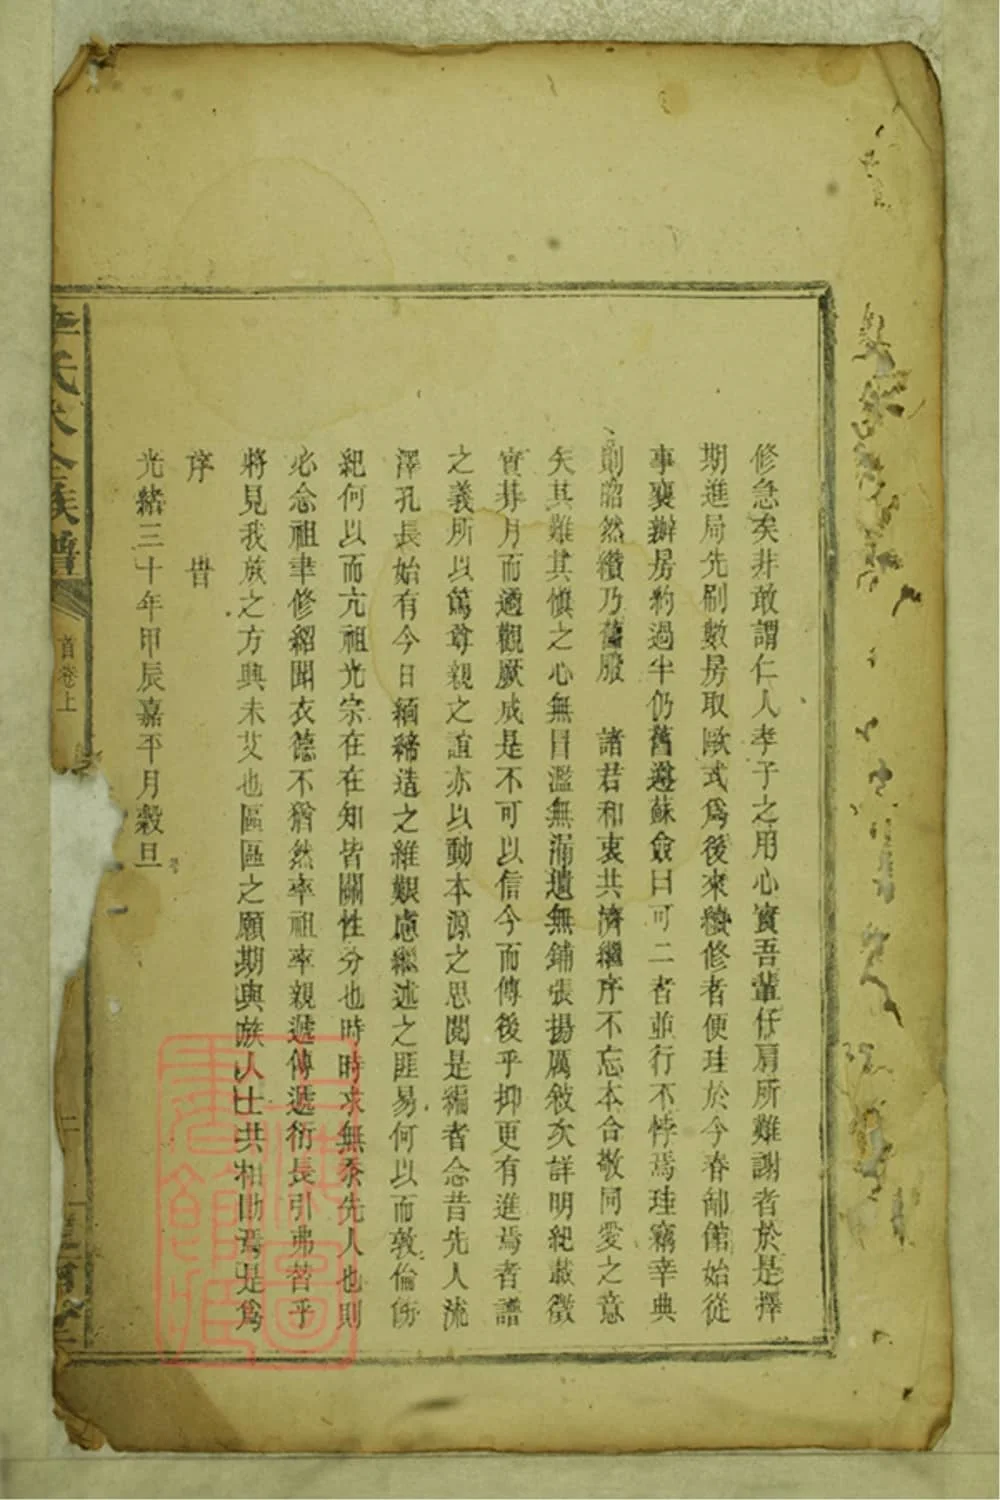 修急矣非敢謂仁人孝子之用心實吾輩仔肩所難謝者於是擇
期進局先刷數房取歐式爲後來續修者便珪於今春卸館始從
事襄辦房豹過半仍舊遵蘇僉曰可二者並行不悖焉珪竊幸典
則昭然纘乃舊服 諸君和衷共濟繼序不忘本合敬同愛之意
矣其難其慎之心無冒濫無漏遺無鋪張揚厲敍次詳明紀載徵
實朞月而遹觀厥成是不可以信今而傳後乎抑更有進焉者譜
之義所以篤尊親之誼亦以動本源之思閱是編者念昔先人流
澤孔長始有今日緬締造之維艱慮繼述之匪易何以而敦倫飭
紀何以而亢祖光宗在在知皆關性分也時時求無忝先人也則
必念祖聿修紹聞衣德不猶然率祖率親遞傳遞衍長引弗替乎
將見我族之方興未艾也區區之願期與族人士共相勖焉是爲
序 昔
光緒三十年甲辰嘉平月穀旦
氏大全族譜
首卷上